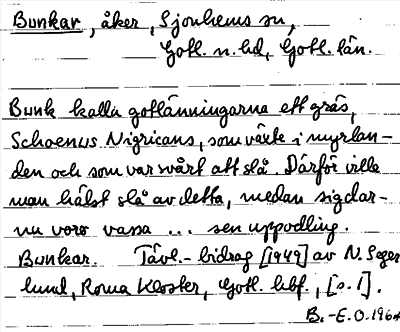 Bunkar, åker, Sjonhems sn,
Gotl. n. hd, Gotl. län.
Bunk kalla gotlänningarna ett gräs,
Schoenus Nigricans, som växte i myrlan-
den och som var svårt att slå. Därför ville
man hälst slå av detta, medan sigdar-
na voro vassa ... sen uppodling.
Bunkar. Tävl.-bidrag [1949] av N. Seger
lund, Roma Kloster, Gotl. hbf., [s. 1].
B.-E.O. 1964